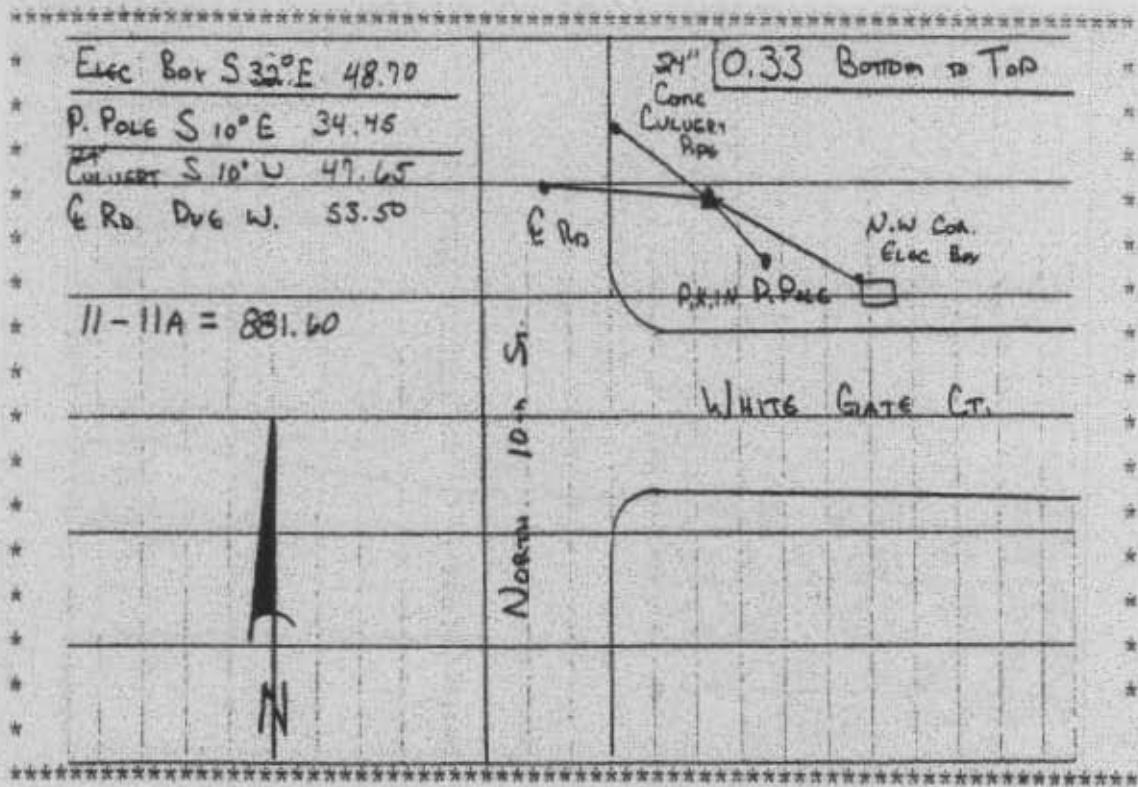 Elec Box S 32° E 48.70
P. Pole S 10° E 34.45
24" Culvert S 10° W 47.65
℄ Rd Due W. 53.50
11-11A = 881.60
24"
Conc
Culvert
Pipe
0.33 Bottom to Top
℄ Rd
N.W Cor.
Elec Box
P.K. IN P. Pole
North 10th St.
White Gate Ct.
N